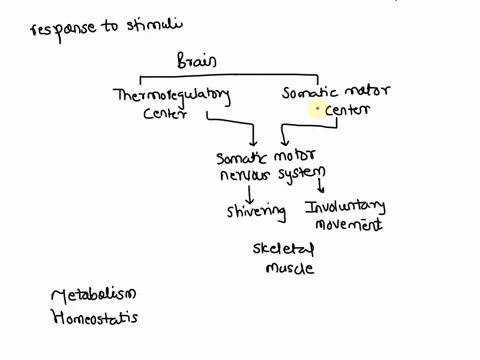 response to stimuli
Brain
Thermoregulatory
Center
Somatic motor
center
Somatic motor
nervous system
Shivering
Involuntary
movement
Skeletal
muscle
Metabolism
Homeostatis